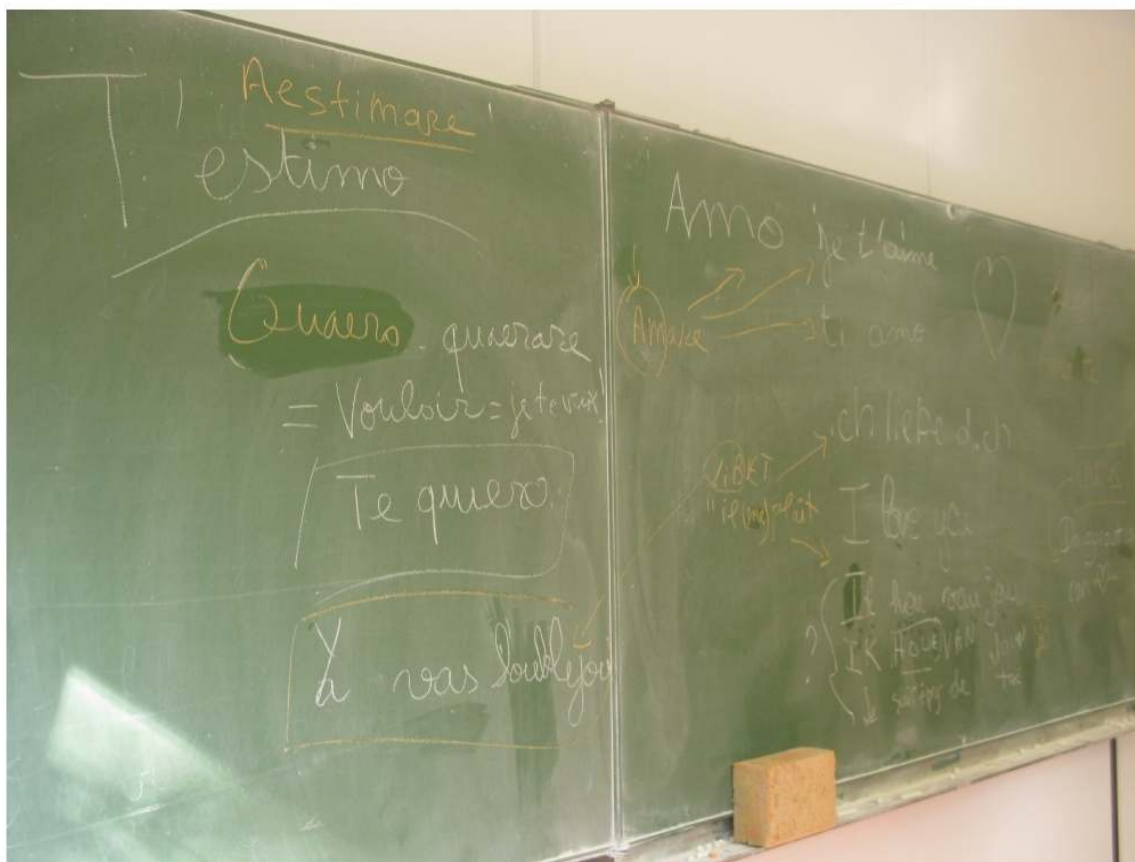 Aestimare
T'estimo
Quaero. quaerare
= Vouloir = je te veux!
Te quiero.
Ya vas loublejou
Amo je t'aime
Amare ti amo
ich liebe dich
LiBET
"il (me) plaît
I love you
Ik hou van jou
IK HOUE VAN jouw
de